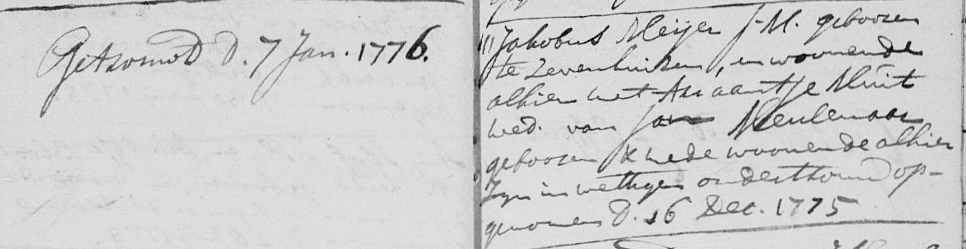 Getromd d. 7 Jan. 1776.
Jakobus Meijer J. M. geboren
te Zevenhuisen, en woonende
alhier met Ariaantje Kluit
wed. van Jan Meulenaar
geboren & mede woonende alhier
Zyn in wettigen ondertrouw op-
genomen d. 16 Dec. 1775